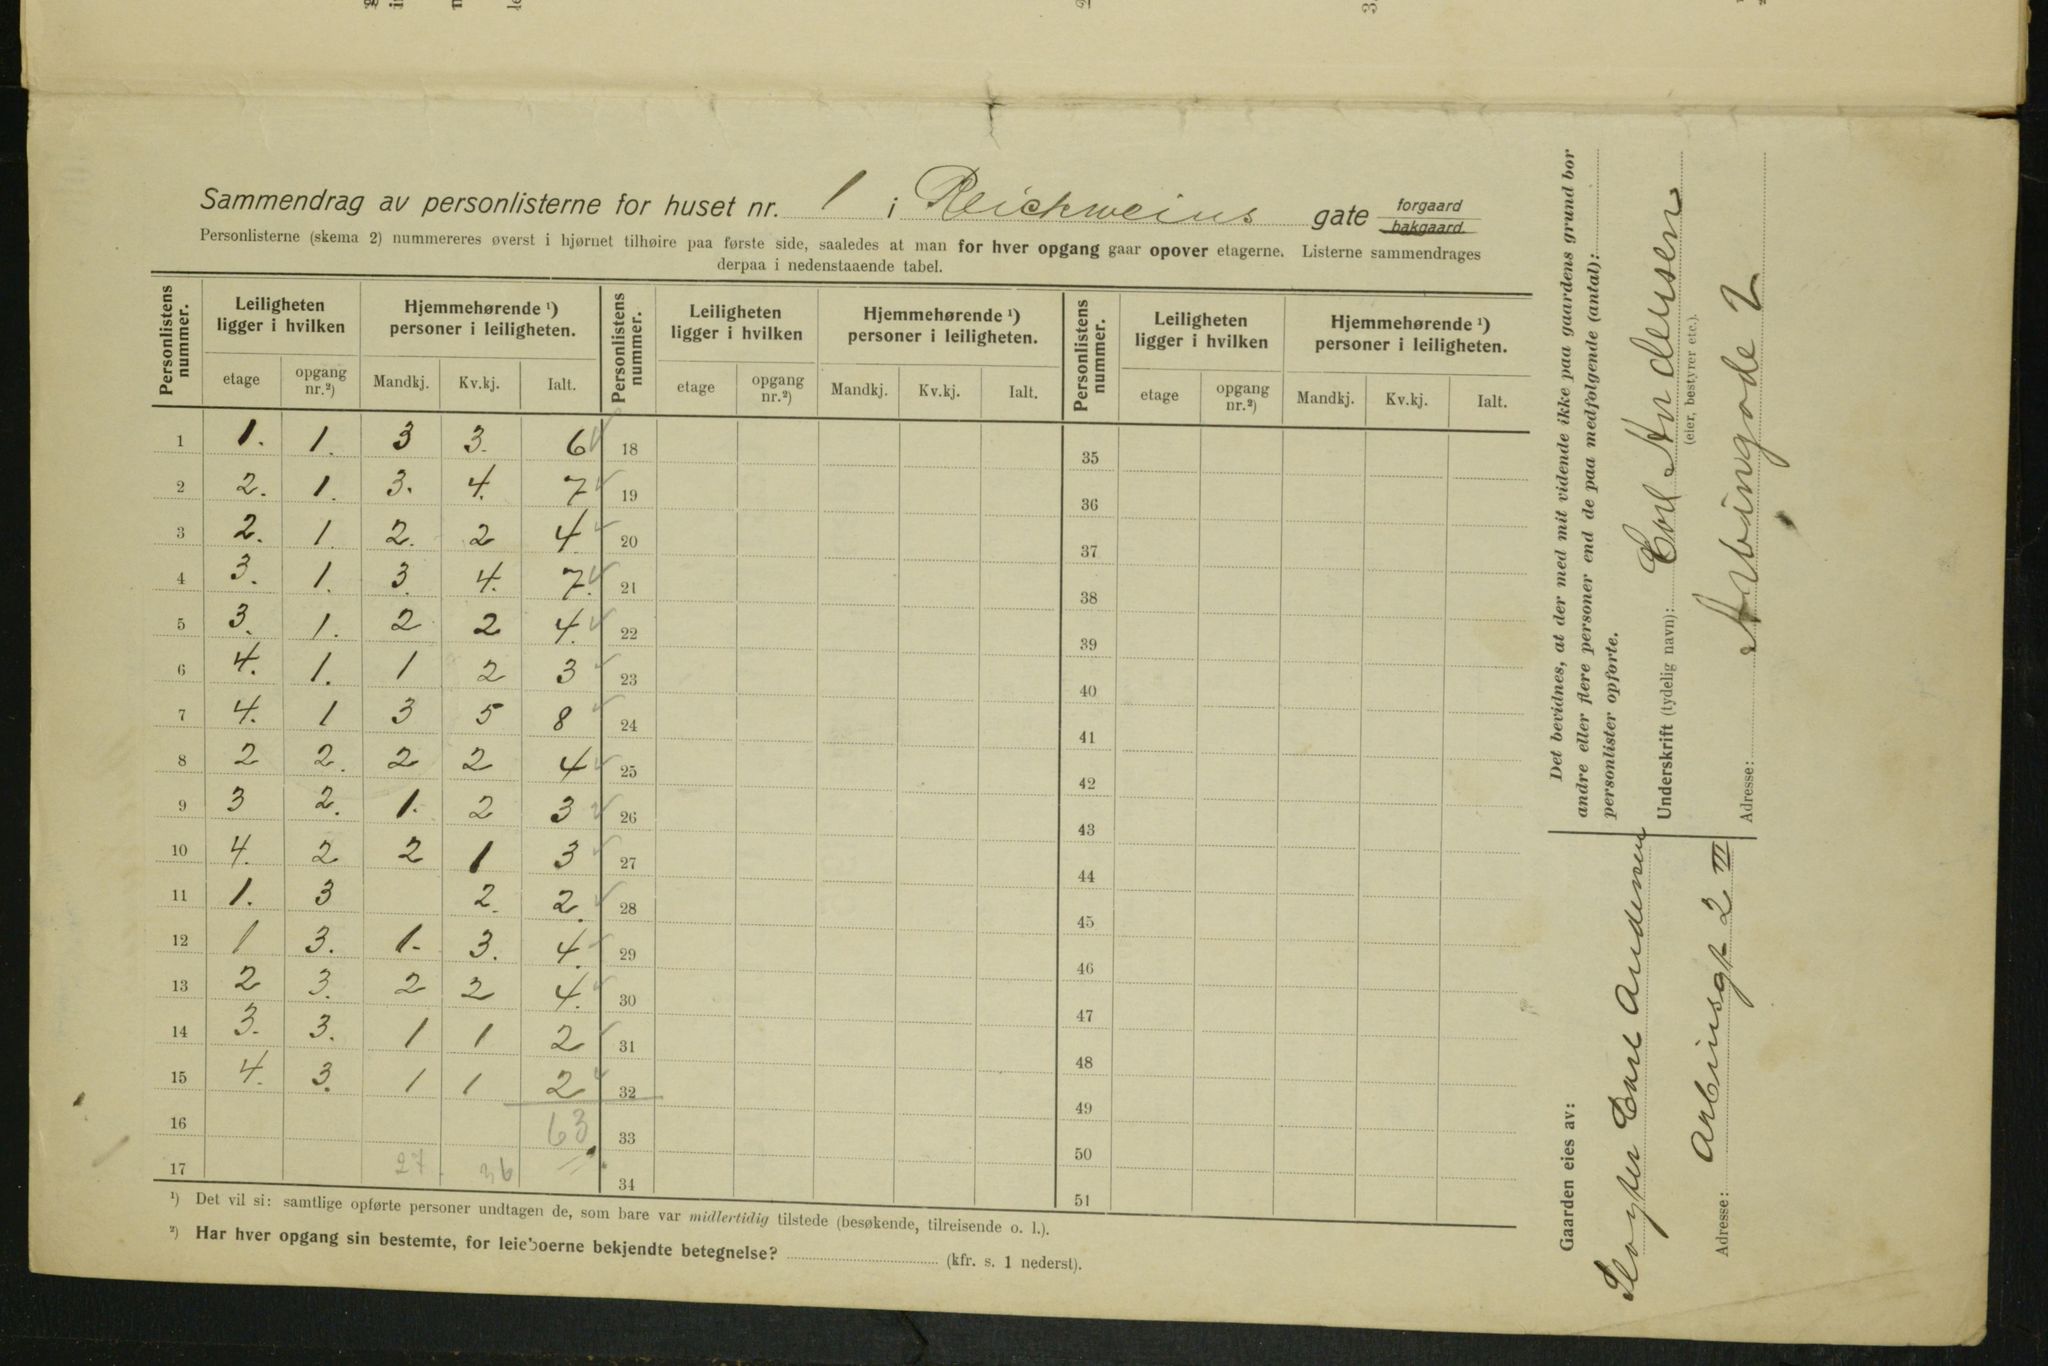 Sammendrag av personlisterne for huset nr. 1 i Reichweins gate forgaard bakgaard.
Personlisterne (skema 2) nummereres øverst i hjørnet tilhøire paa første side, saaledes at man for hver opgang gaar opover etagerne. Listerne sammendrages
derpaa i nedenstaaende tabel.
Personlistens nummer. Leiligheten ligger i hvilken Hjemmehørende ¹) personer i leiligheten. Personlistens nummer. Leiligheten ligger i hvilken Hjemmehørende ¹) personer i leiligheten. Personlistens nummer. Leiligheten ligger i hvilken Hjemmehørende ¹) personer i leiligheten.
etage opgang nr.²) Mandkj. Kv.kj. Ialt. etage opgang nr.²) Mandkj. Kv.kj. Ialt. etage opgang nr.²) Mandkj. Kv.kj. Ialt.
1 1. 1. 3 3. 6 18 35
2 2. 1. 3. 4. 7 19 36
3 2. 1. 2. 2 4. 20 37
4 3. 1. 3. 4. 7. 21 38
5 3. 1. 2 2 4. 22 39
6 4. 1. 1 2 3 23 40
7 4. 1 3 5 8 24 41
8 2 2. 2 2 4 25 42
9 3 2. 1. 2 3 26 43
10 4. 2 2 1 3 27 44
11 1. 3 2. 2. 28 45
12 1 3. 1. 3. 4. 29 46
13 2 3. 2 2 4. 30 47
14 3. 3. 1 1 2 31 48
15 4. 3. 1 1 2 32 49
16 63 33 50
17 27. 36 34 51
¹) Det vil si: samtlige opførte personer undtagen de, som bare var midlertidig tilstede (besøkende, tilreisende o. l.).
²) Har hver opgang sin bestemte, for leieboerne bekjendte betegnelse? (kfr. s. 1 nederst).
Det bevidnes, at der med mit vidende ikke paa gaardens grund bor
andre eller flere personer end de paa medfolgende (antal):
personlister opforte.
Underskrift (tydelig navn): Carl Andersen
(eier, bestyrer etc.).
Adresse: Arbingade 2
Gaarden eies av:
Carl Andersen
Adresse: Arbinsgt 2 III